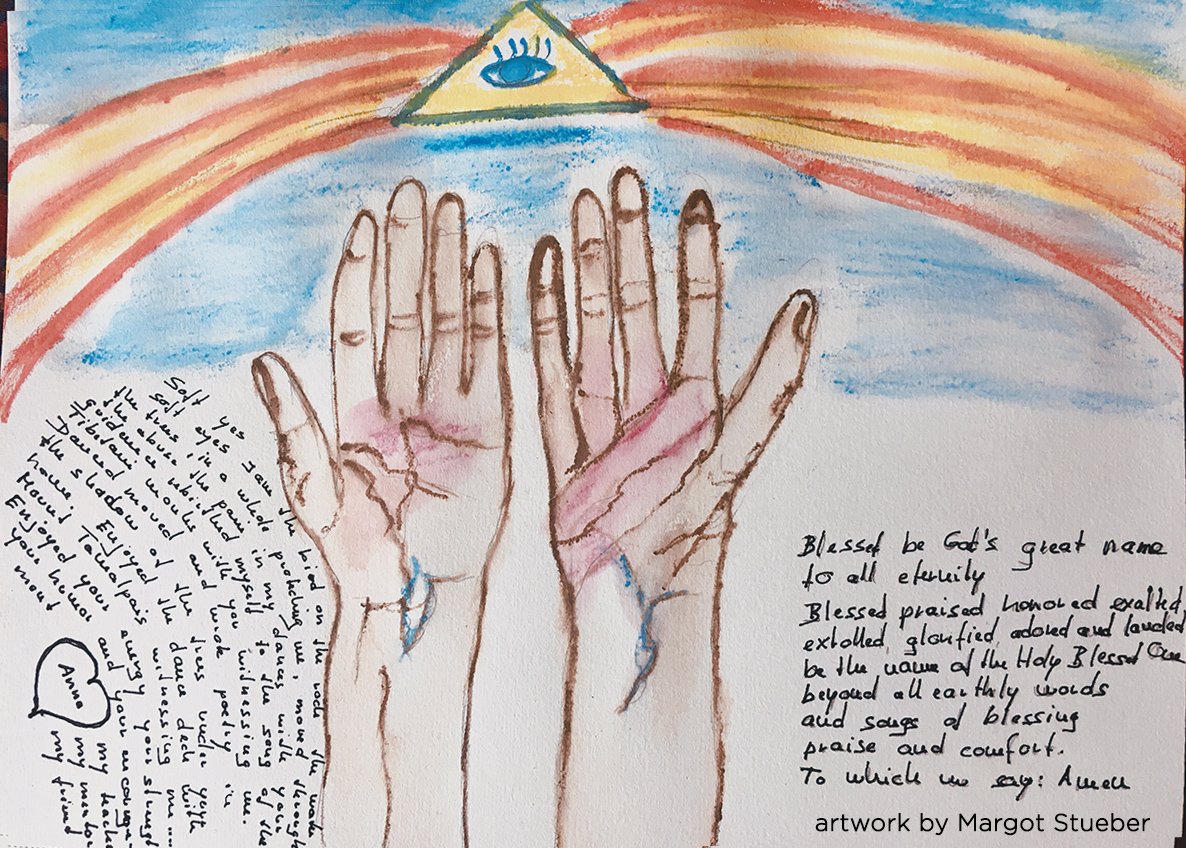 Soft yes saw the bird on the rock the
Soft eyes in a whole protecting me, moved through
the trees, in the pain in my dances with your
the abuse whistled myself to the song of the
guidence with you witnessing me.
Tibetani monks and work poetry in
Danced moved of the tres under your
the shadow of the dance deck with
home, Enjoyed witnessing me....
Mount Tamalpais energy your strength
Enjoyed your and your encourage
your humor
ment
Anna
my teacher
my mentor
my friend
Blessed be God's great name
to all eternity
Blessed praised honored exalted
extolled glorified, adored and lauded
be the name of the Holy Blessed One
beyond all earthly words
and songs of blessing
praise and comfort.
To which we say: Amen
artwork by Margot Stueber